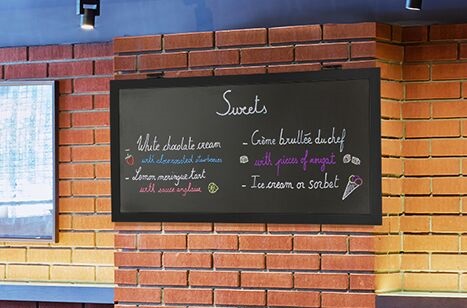 Sweets
- White chocolate cream
with
- Lemon meringue tart
with sauce anglaise
- Crème brullée du chef
with pieces of nougat
- Ice cream or sorbet